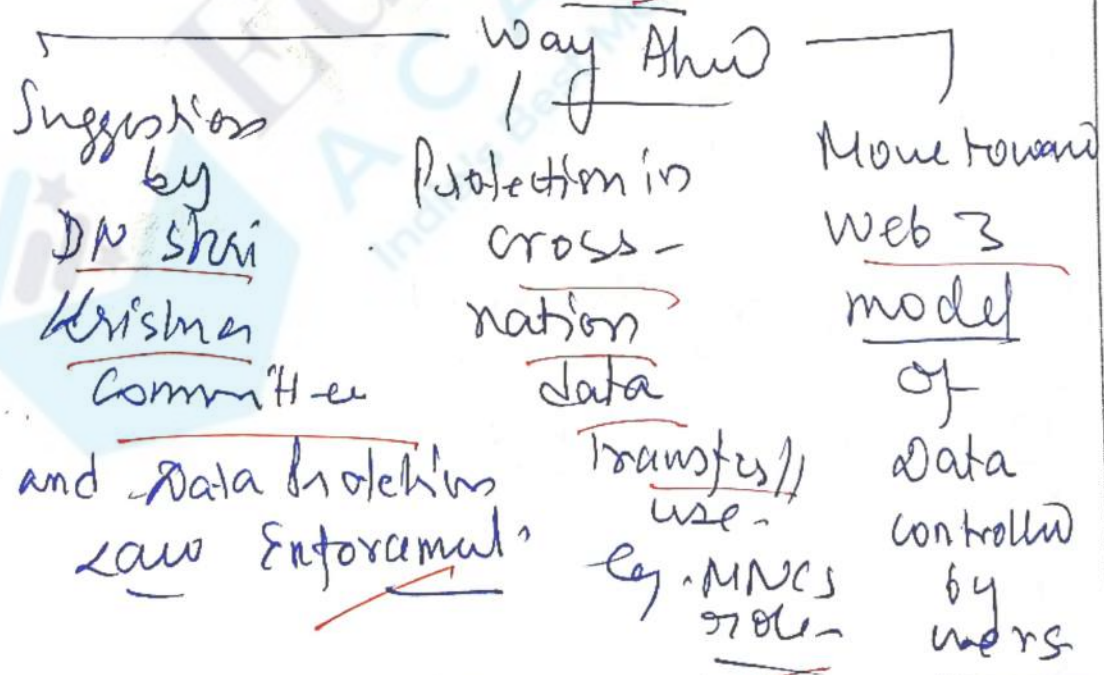 Way Ahead
Suggestions
by
DN Shri
Krishna
Committee
and Data Protection
Law Enforcement.
Protection in
cross-
nation
data
transfers//
use.
Eg. MNCs
role-
Move toward
Web 3
model
of
Data
controlled
by
users